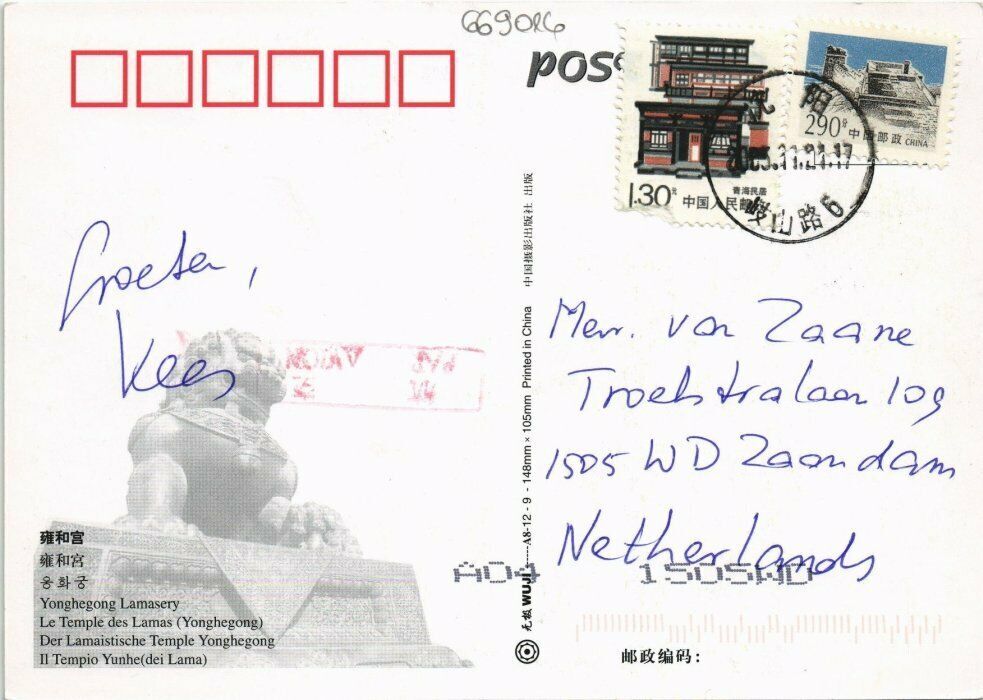 669016
pos
1.30元
青海民居
中国人民邮
290分
中国邮政 CHINA
沈阳
2003.11.21.17
山路6
Groeten,
Kees
Mevr. van Zaane
Troelstralaan 109
1505 WD Zaandam
Netherlands
A04 1505WD
中国摄影出版社 出版
无极 WUJI-----A8-12-9-148mm×105mm Printed in China
雍和宫
雍和宮
옹화궁
Yonghegong Lamasery
Le Temple des Lamas (Yonghegong)
Der Lamaistische Temple Yonghegong
Il Tempio Yunhe(dei Lama)
邮政编码：